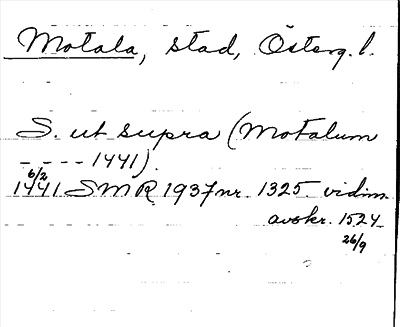 Motala, stad, Österg. l.
S. ut supra (Motalum
- - - - 1441).
6/2
1441 SMR 1937 nr. 1325 vidim.
avskr. 1524
26/9